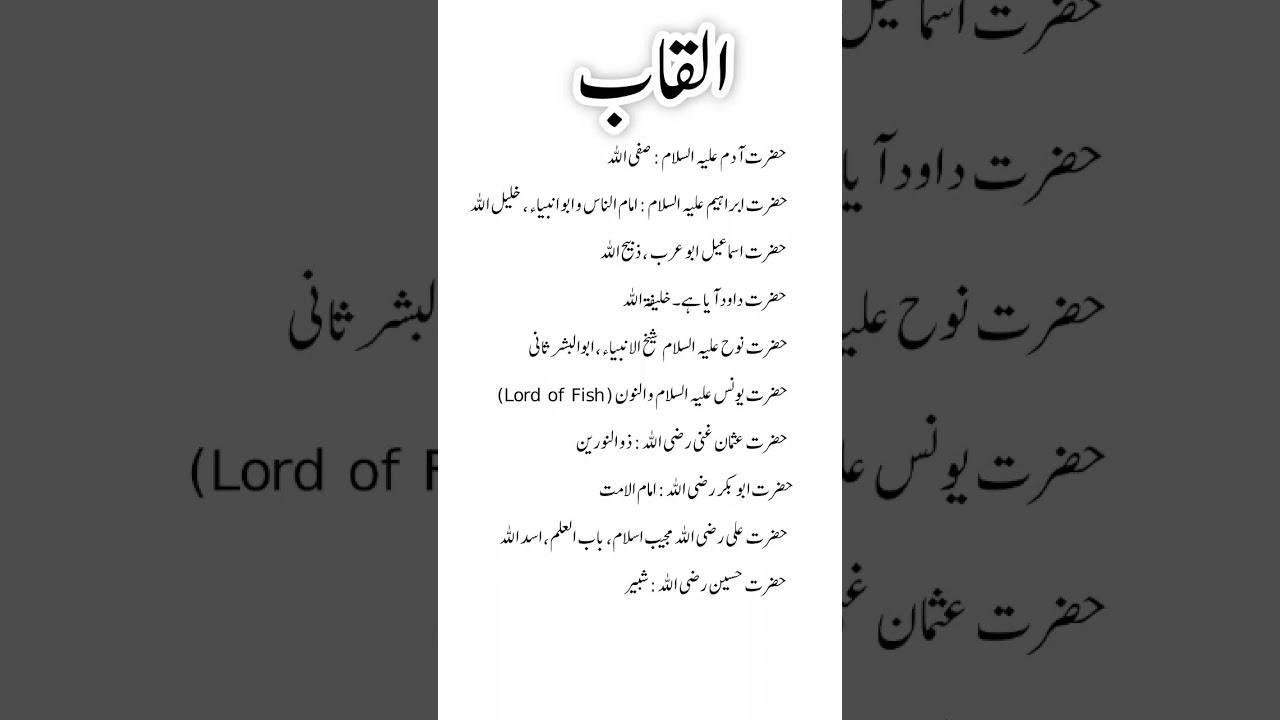 القاب
حضرت آدم علیہ السلام : صفی اللہ
حضرت ابراہیم علیہ السلام : امام الناس و ابوانبیاء ، خلیل اللہ
حضرت اسماعیل ابو عرب ، ذبیح اللہ
حضرت داود آیا ہے۔ خلیفۃ اللہ
حضرت نوح علیہ السلام شیخ الانبیاء ، ابوالبشر ثانی
حضرت یونس علیہ السلام والنون (Lord of Fish)
حضرت عثمان غنی رضی اللہ : ذوالنورین
حضرت ابو بکر رضی اللہ : امام الامت
حضرت علی رضی اللہ مجیب اسلام، باب العلم، اسد اللہ
حضرت حسین رضی اللہ : شبیر